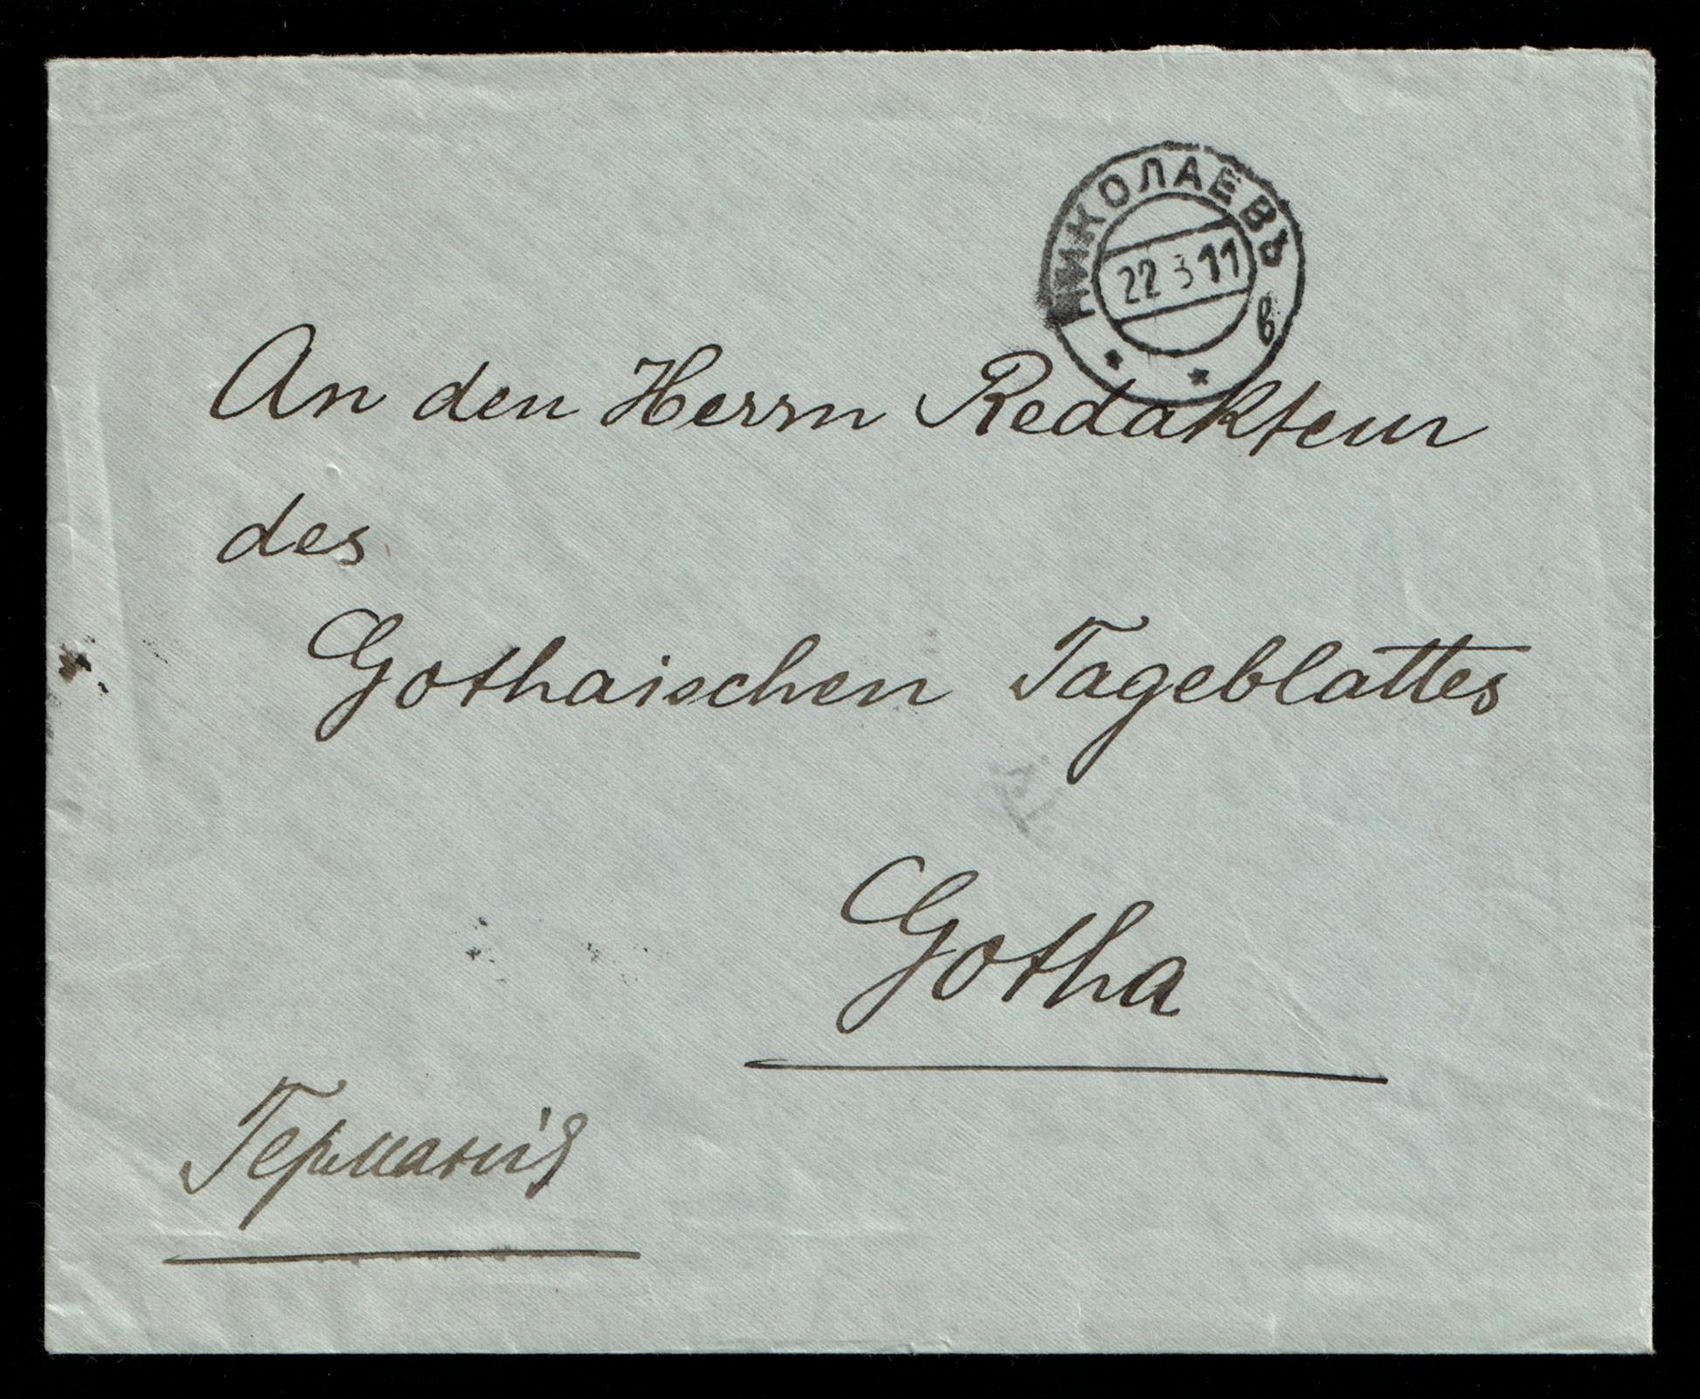 НИКОЛАЕВЪ
22 3 11
в
An den Herrn Redakteur
des
Gothaischen Tageblattes
Gotha
Германія